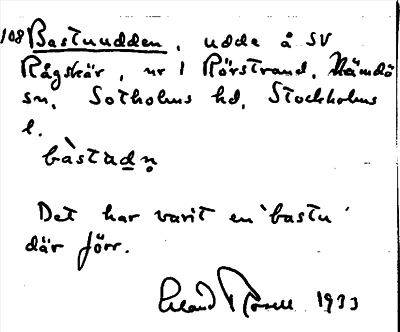 108 Bastuudden, udde å SV
Rågskär, nr 1 Rörstrand, Nämdö
sn, Sotholms hd, Stockholms
l.
bàstudn̥
Det har varit en 'bastu'
där förr.
Erland Rosell 1933